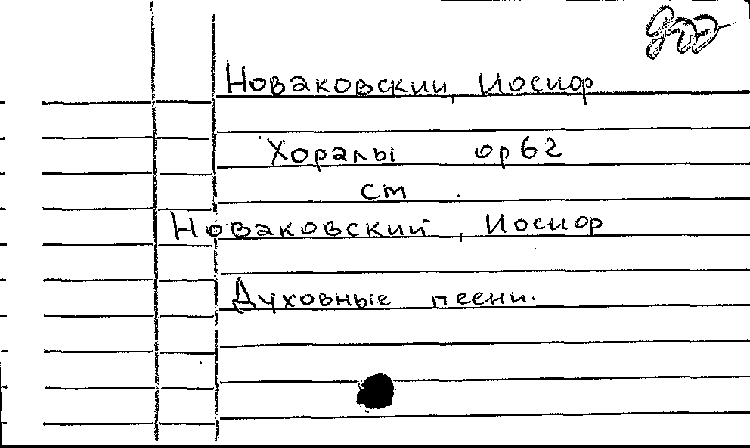 Новаковский, Иосиф
Хоралы ор 62
см.
Новаковский, Иосиф
Духовные песни.